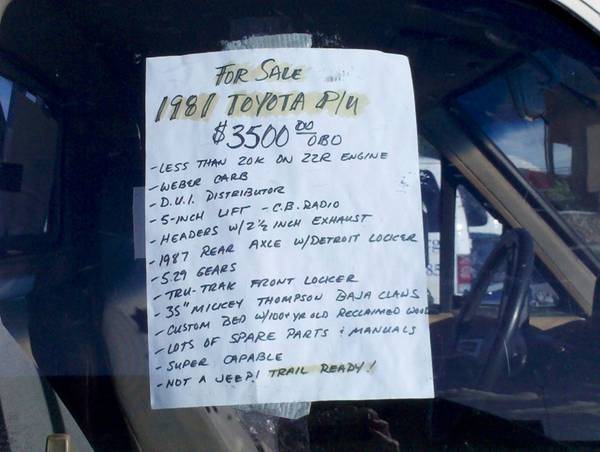 FOR SALE
1981 TOYOTA P/U
$3500 00 OBO
- LESS THAN 20K ON 22R ENGINE
- WEBER CARB
- D.U.I. DISTRIBUTOR
- 5-INCH LIFT - C.B. RADIO
- HEADERS W/2 1/2 INCH EXHAUST
- 1987 REAR AXLE W/DETROIT LOCKER
- 5.29 GEARS
- TRU-TRAK FRONT LOCKER
- 35" MICKEY THOMPSON BAJA CLAWS
- CUSTOM BED W/100+ YR OLD RECLAIMED WOOD
- LOTS OF SPARE PARTS & MANUALS
- SUPER CAPABLE
- NOT A JEEP! TRAIL READY!